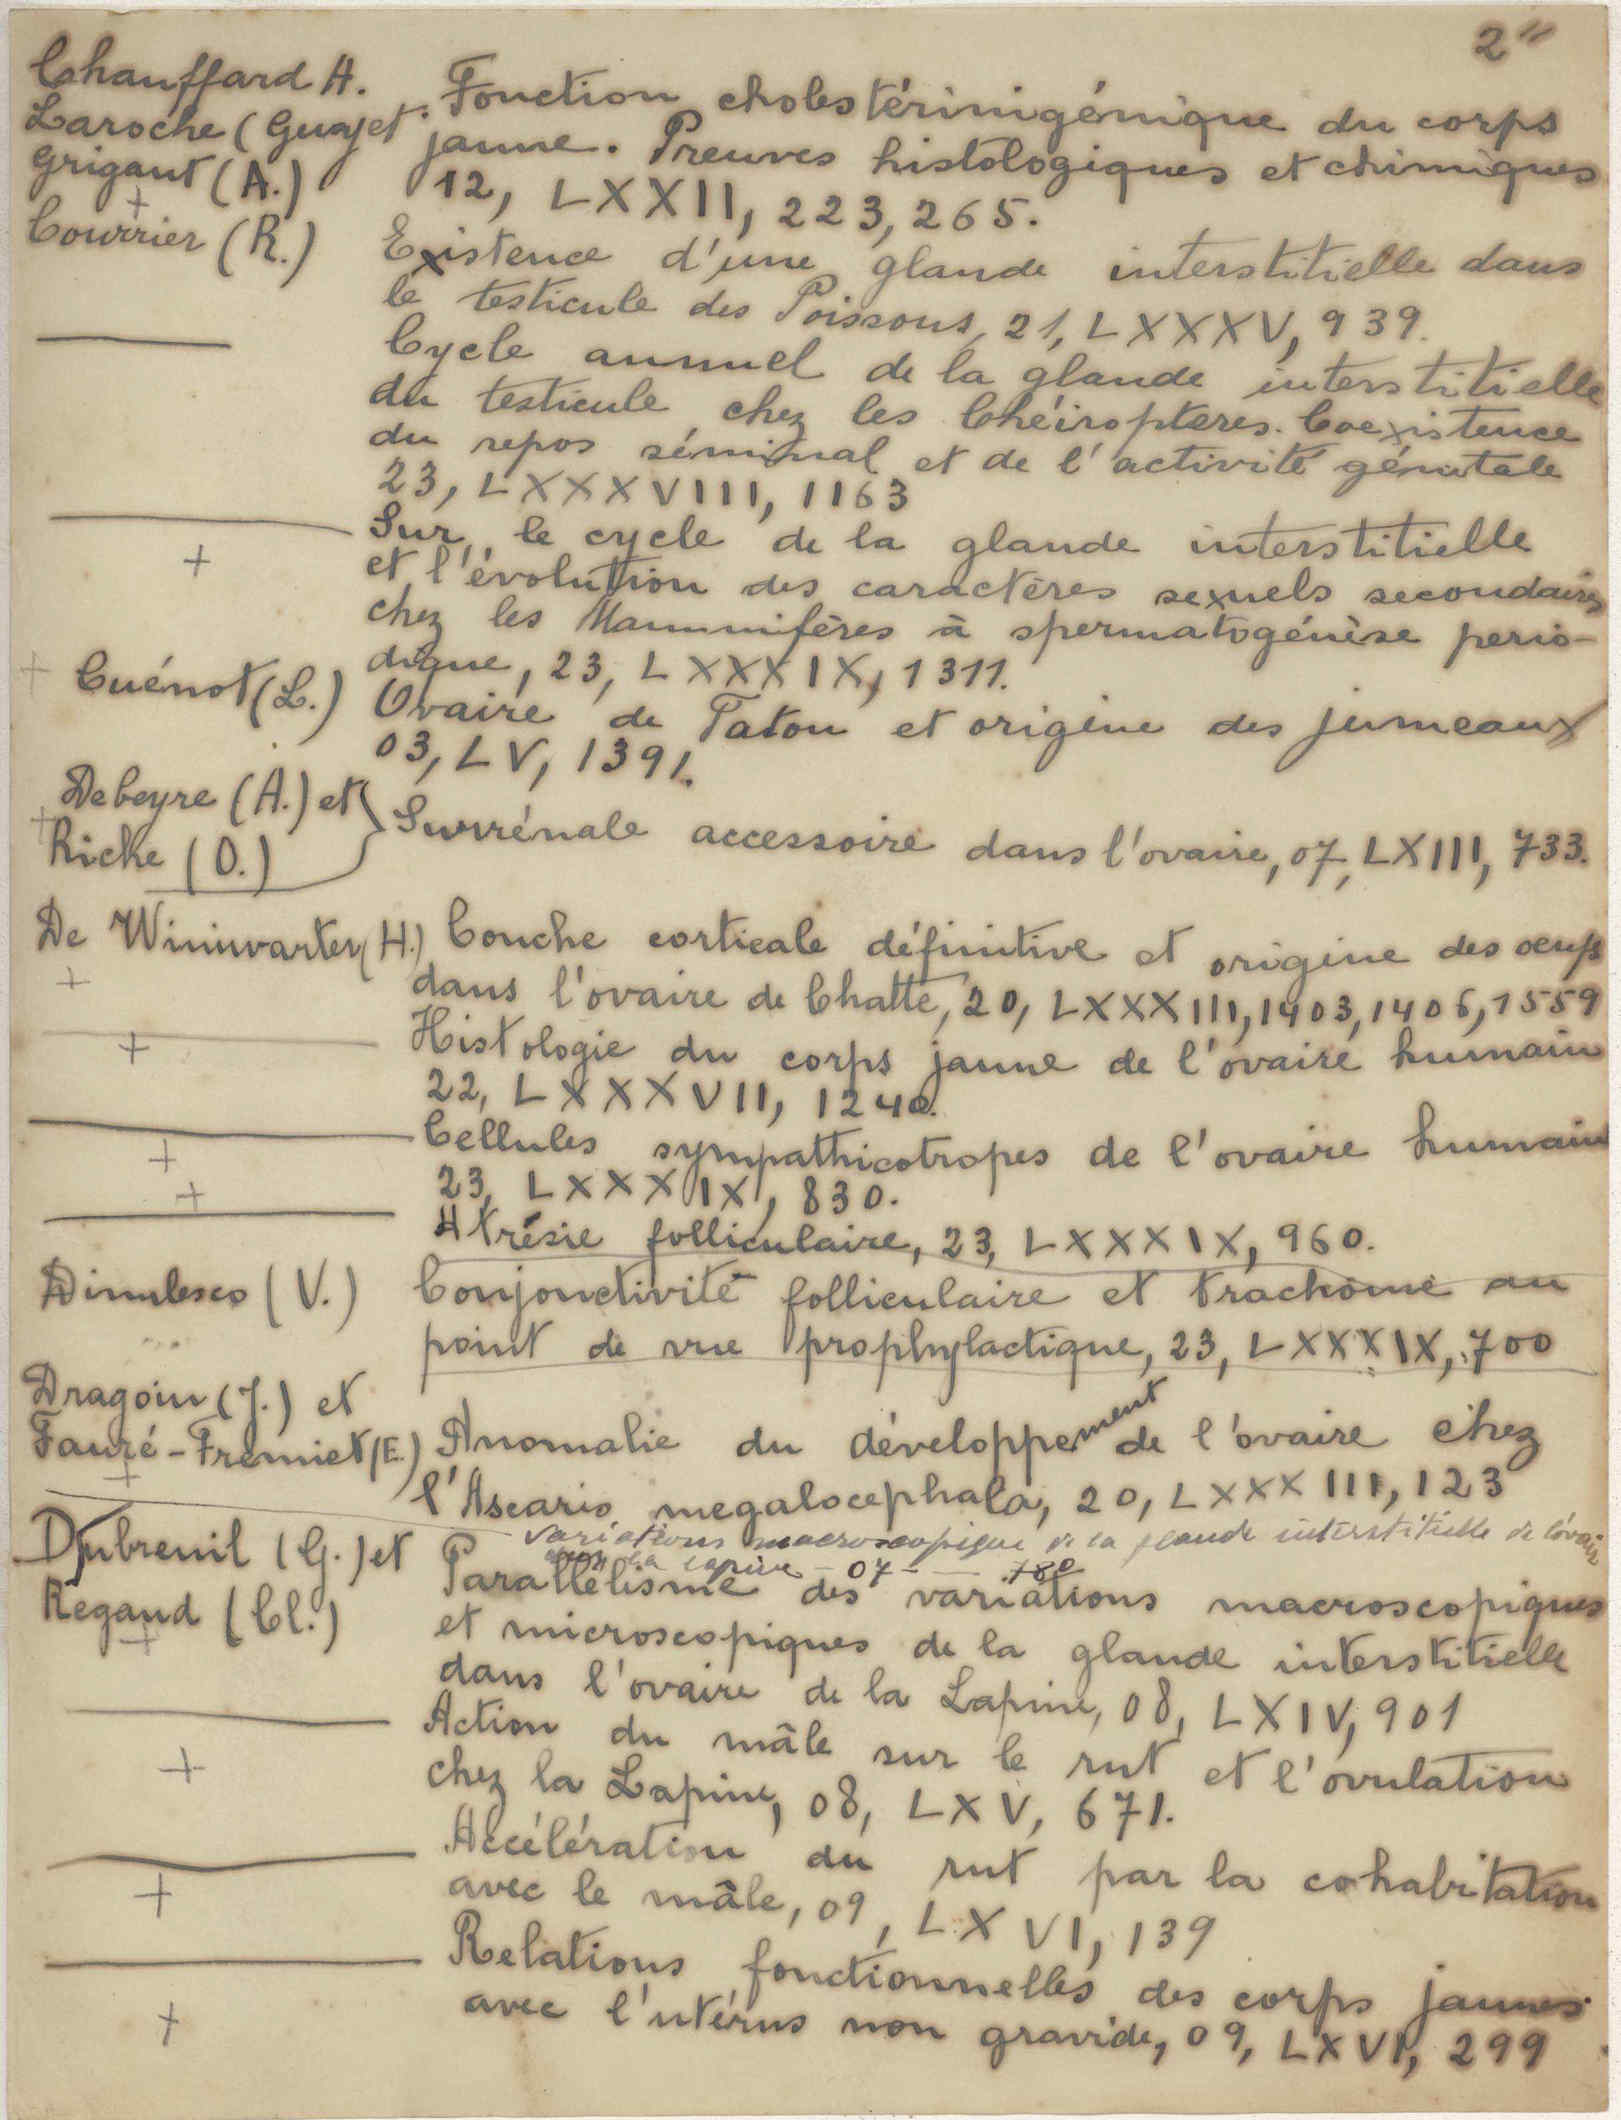 2"
Chauffard A.
Laroche (Guy) et
Grigaut (A.)
Fonction cholestérinigénique du corps
jaune. Preuves histologiques et chimiques
12, LXXII, 223, 265.
+
Courrier (R.)
Existence d'une glande interstitielle dans
le testicule des Poissons, 21, LXXXV, 939.
Cycle annuel de la glande interstitielle
du testicule chez les Chéiroptères. Coexistence
du repos séminal et de l'activité génitale
23, LXXXVIII, 1163
Sur le cycle de la glande interstitielle
+
et l'évolution des caractères sexuels secondaires
chez les Mammifères à spermatogénèse pério-
dique, 23, LXXXIX, 1311.
+ Cuénot (L.)
Ovaire de Tatou et origine des jumeaux
03, LV, 1391.
Debeyre (A.) et
+ Riche (O.)
Surrénale accessoire dans l'ovaire, 07, LXIII, 733.
De Winiwarter (H.)
+
Couche corticale définitive et origine des oeufs
dans l'ovaire de Chatte, 20, LXXXIII, 1403, 1406, 1559
+
Histologie du corps jaune de l'ovaire humain
22, LXXXVII, 1240.
+
Cellules sympathicotropes de l'ovaire humain
23, LXXXIX, 830.
+
Atrésie folliculaire, 23, LXXXIX, 960.
Dinulesco (V.)
Conjonctivité folliculaire et trachome au
point de vue prophylactique, 23, LXXXIX, 700
Dragoiu (J.) et
Fauré-Fremiet (E.)
+
Anomalie du développement de l'ovaire chez
l'Ascaris megalocephala, 20, LXXXIII, 123
Dubreuil (G.) et
Regaud (Cl.)
+
Variations macroscopique de la glande interstitielle de l'ovaire
chez la lapine - 07 - - 780
Parallélisme des variations macroscopiques
et microscopiques de la glande interstitielle
dans l'ovaire de la Lapine, 08, LXIV, 901
+
Action du mâle sur le rut et l'ovulation
chez la Lapine, 08, LXV, 671.
+
Accélération du rut par la cohabitation
avec le mâle, 09, LXVI, 139
+
Relations fonctionnelles des corps jaunes
avec l'utérus non gravide, 09, LXVI, 299